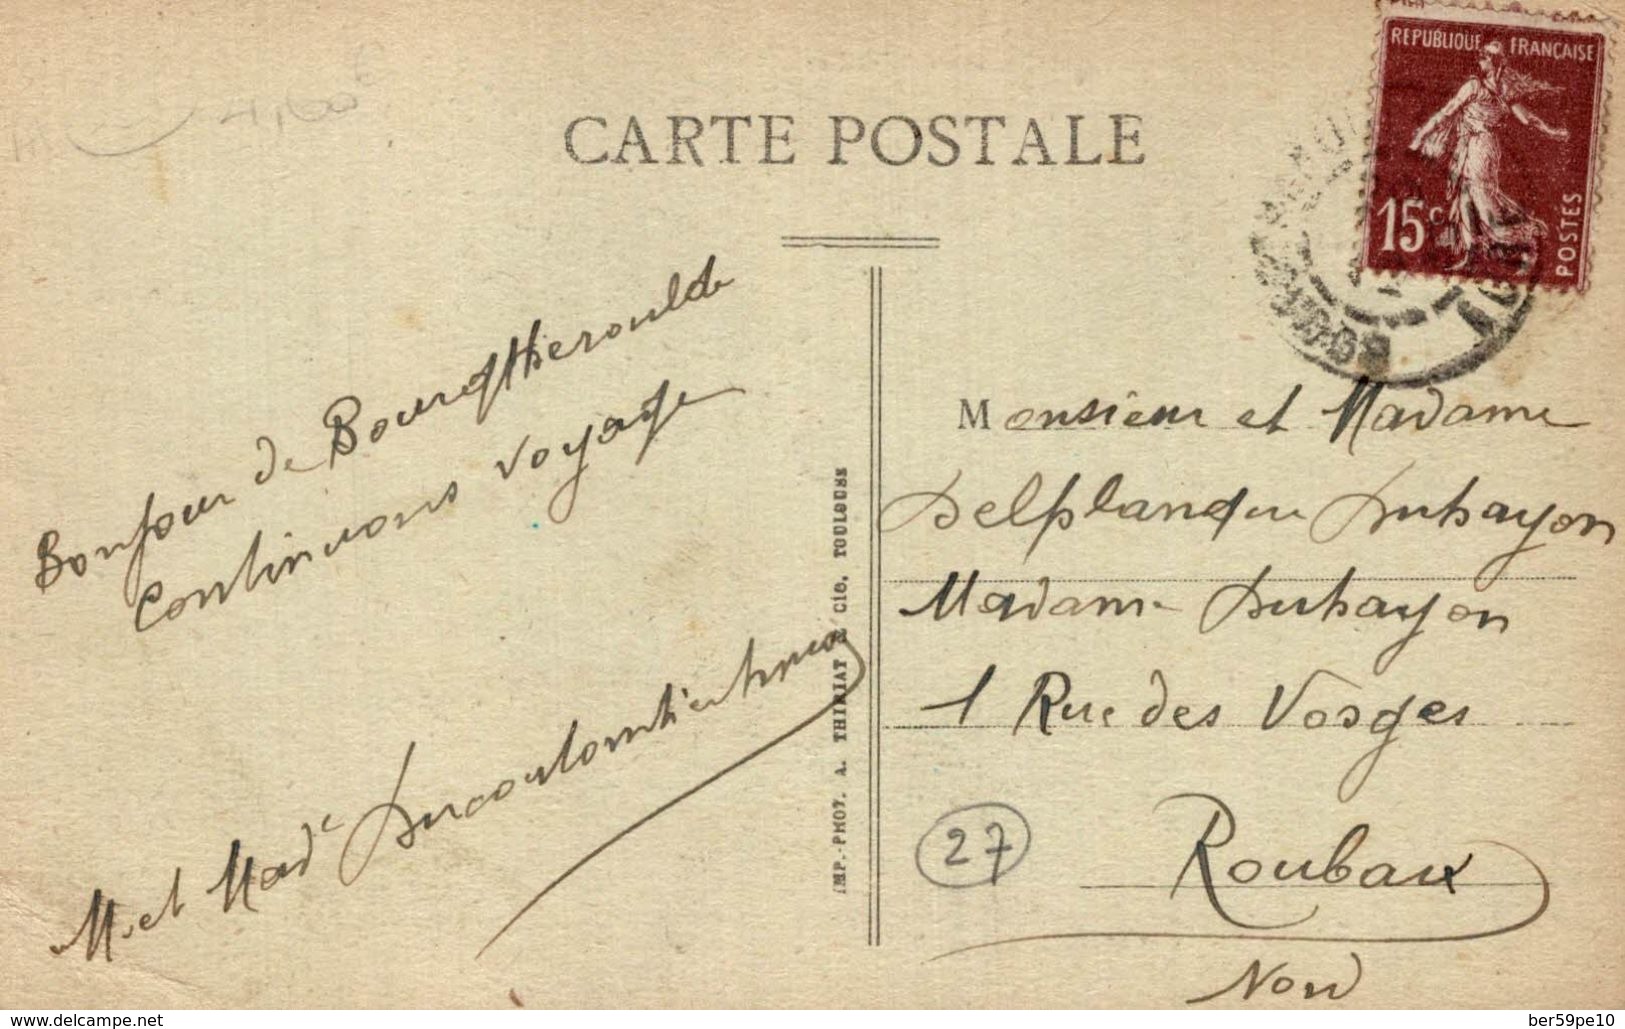 CARTE POSTALE
REPUBLIQUE FRANÇAISE
15c
POSTES
Bonjour de Bourgtheroulde
Continuons voyage
M. et Made
IMP.-PHOT. A. THIRIAT & Cie, TOULOUSE
Monsieur et Madame
Delplanque Duhayon
Madame Duhayon
1 Rue des Vosges
27
Roubaix
Nord
www.delcampe.net
ber59pe10